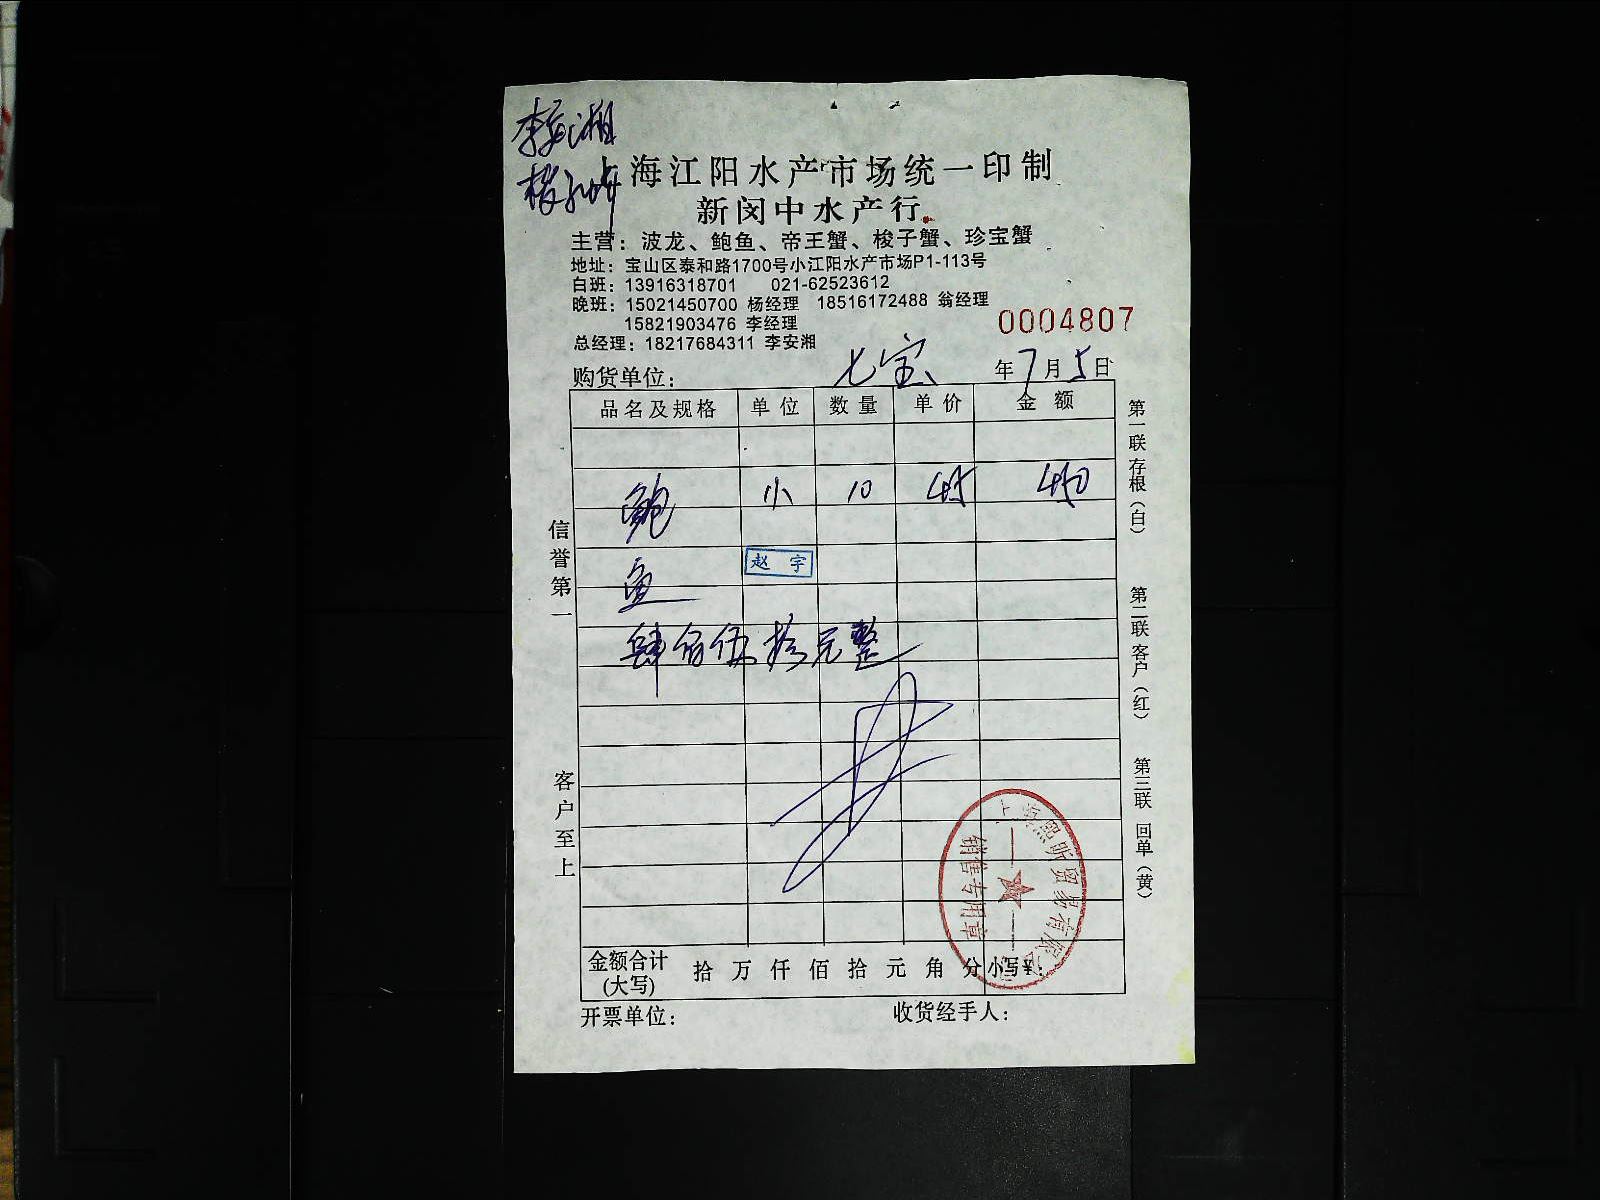 李安湘
上海江阳水产市场统一印制
新闵中水产行
主营：波龙、鲍鱼、帝王蟹、梭子蟹、珍宝蟹
地址：宝山区泰和路1700号小江阳水产市场P1-113号
白班：13916318701 021-62523612
晚班：15021450700 杨经理 18516172488 翁经理
15821903476 李经理
0004807
总经理：18217684311 李安湘
购货单位： 七宝 年7月5日
品名及规格 单位 数量 单价 金额
鲍 小 10 45 450
鱼
赵宇
肆佰伍拾元整
金额合计(大写) 拾 万 仟 佰 拾 元 角 分 小写¥：
开票单位： 收货经手人：
信誉第一
客户至上
第一联 存根（白）
第二联 客户（红）
第三联 回单（黄）
上海熙昕贸易有限公司
销售专用章